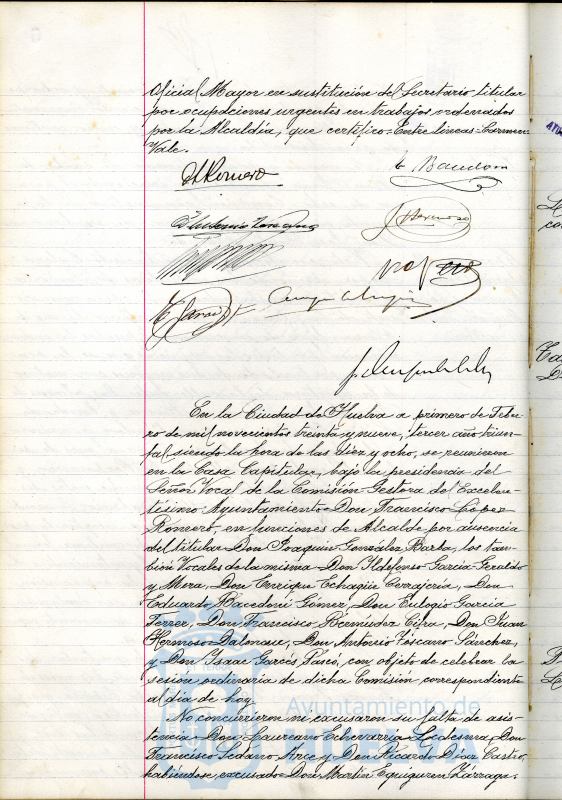 Oficial Mayor en sustitución del Secretario titular
por ocupaciones urgentes en trabajos ordenados
por la Alcaldía, que certifico=Entre líneas=Carmen=
Vale.
Romero
J. Hermoso
En la Ciudad de Huelva a primero de Febre-
ro de mil novecientos treinta y nueve, tercer año triun-
fal siendo la hora de las diez y ocho, se reunieron
en la Casa Capitular, bajo la presidencia del
Señor Vocal de la Comisión Gestora del Excelen-
tísimo Ayuntamiento Don Francisco López
Romero, en funciones de Alcalde por ausencia
del titular Don Joaquín González Barba, los tam-
bién Vocales de la misma Don Ildefonso García Geraldo
y Mora, Don Enrique Echagüe Cerrajería, Don
Eduardo Macedoni Gómez, Don Eulogio García
Ferrer, Don Francisco Bermúdez Cifre, Don Juan
Hermoso Dalmau, Don Antonio Toscano Sánchez,
y Don Isaac Garcés Pascó, con objeto de celebrar la
sesión ordinaria de dicha Comisión correspondiente
al día de hoy.
No concurrieron ni excusaron su falta de asis-
tencia Don Laureano Echevarría Ledesma, Don
Francisco Sedano Arce y Don Ricardo Díaz Castro,
habiéndose excusado Don Martín Equiguren Zárraga.
Ayuntamiento de
HUELVA